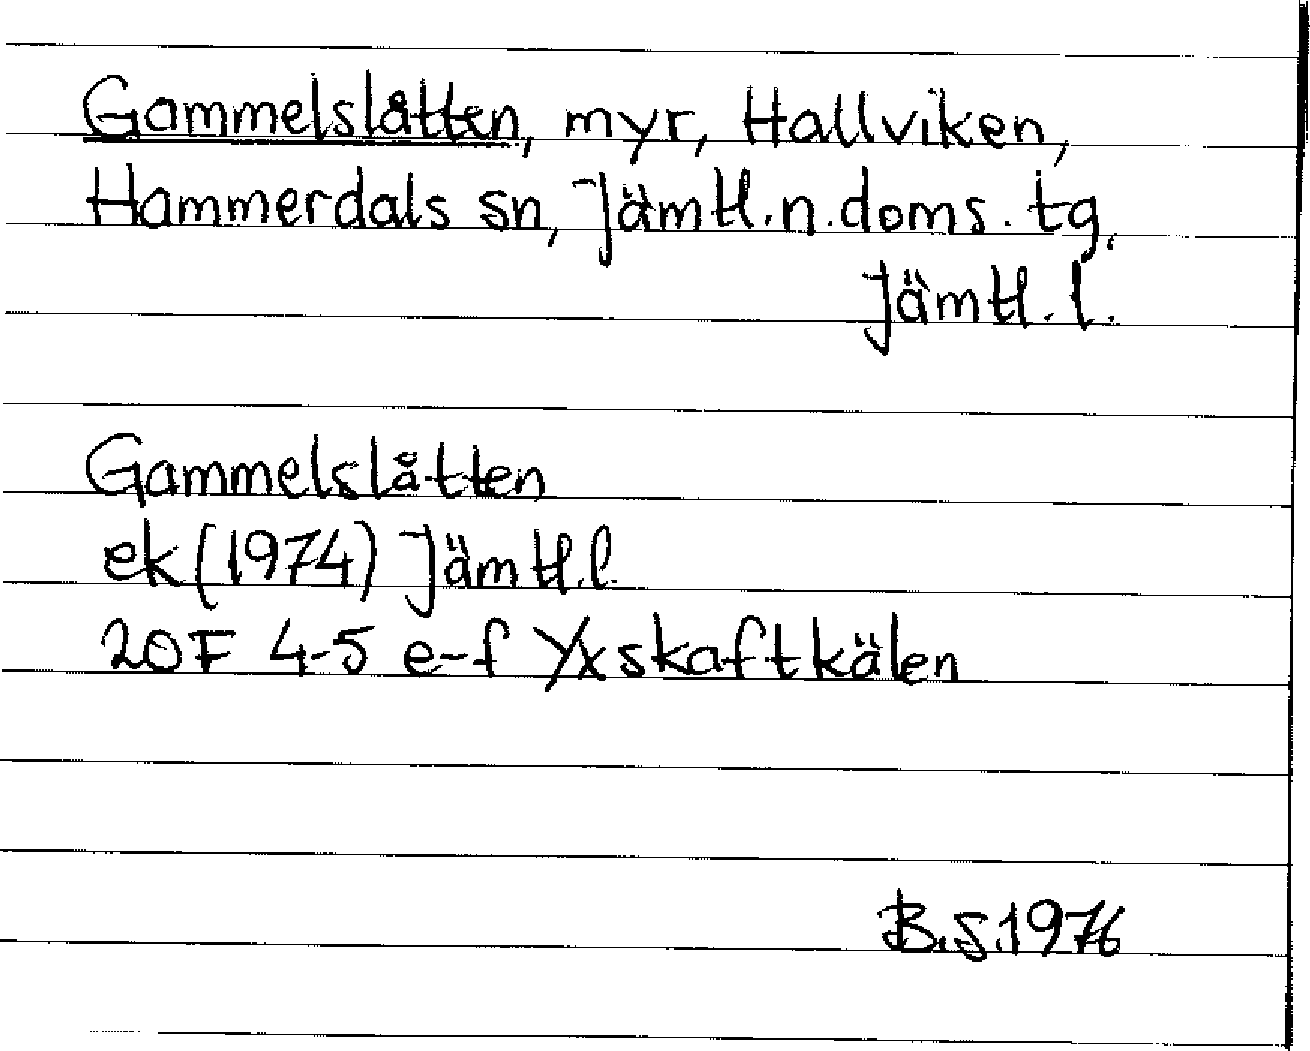 Gammelslåtten, myr, Hallviken,
Hammerdals sn, Jämtl.n.doms.tg,
Jämtl.l.
Gammelslåtten
ek (1974) Jämtl.l.
20F 4-5 e-f Yxskaftkälen
B.S.1976